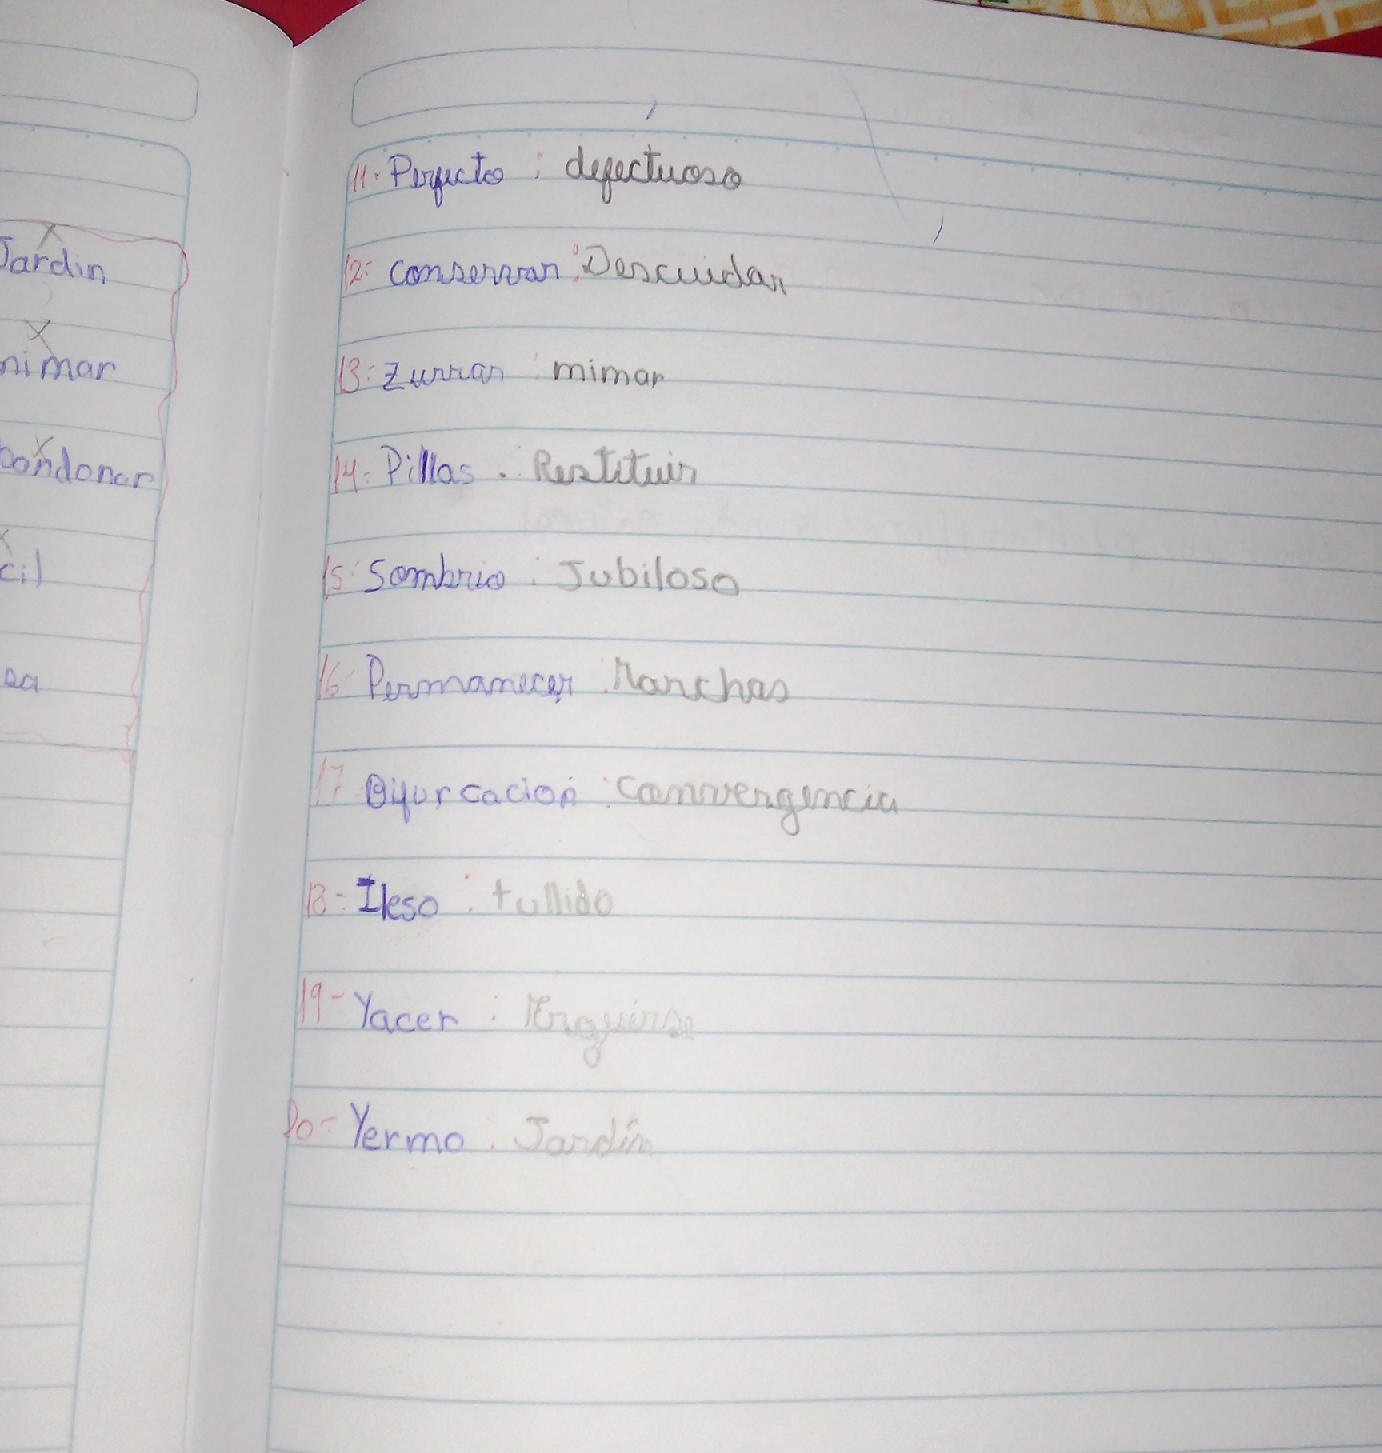 Jardin
nimar
bandonar
cil
ea
11. Perfecto : defectuoso
12: conservar : Descuidar
13: Zurrar : mimar
14: Pillas . Restituir
15: Sombrio : Jubiloso
16: Permanecer : Marchas
17 Bifurcación : convergencia
18- Ileso : tullido
19- Yacer : Erguirse
20- Yermo . Jardín